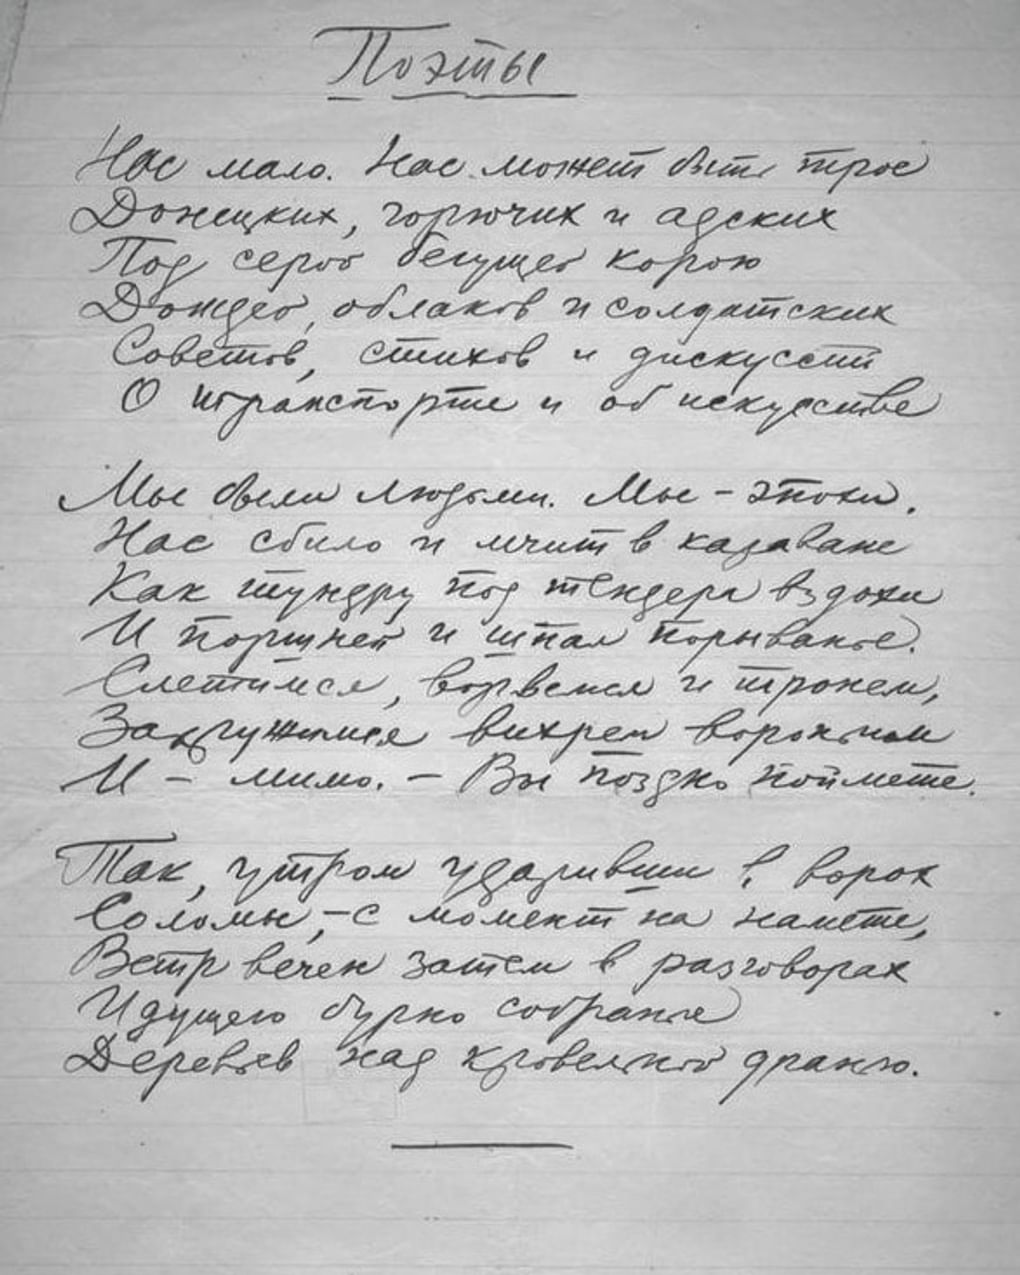 Поэты
Нас мало. Нас может быть трое
Донецких, горючих и адских
Под серой бегущей корою
Дождей, облаков и солдатских
Советов, стихов и дискуссий
О транспорте и об искусстве
Мы были людьми. Мы – эпохи.
Нас сбило и мчит в караване
Как тундру под тендера вздохи
И поршней и шпал порыванье.
Слетимся, ворвемся и тронем,
Закружимся вихрем вороньим
И – мимо. – Вы поздно поймете.
Так, утром ударивши в ворох
Соломы, – с момент на намете,
Ветр вечен затем в разговорах
Идущего бурно собранья
Деревьев над кровельной дранью.